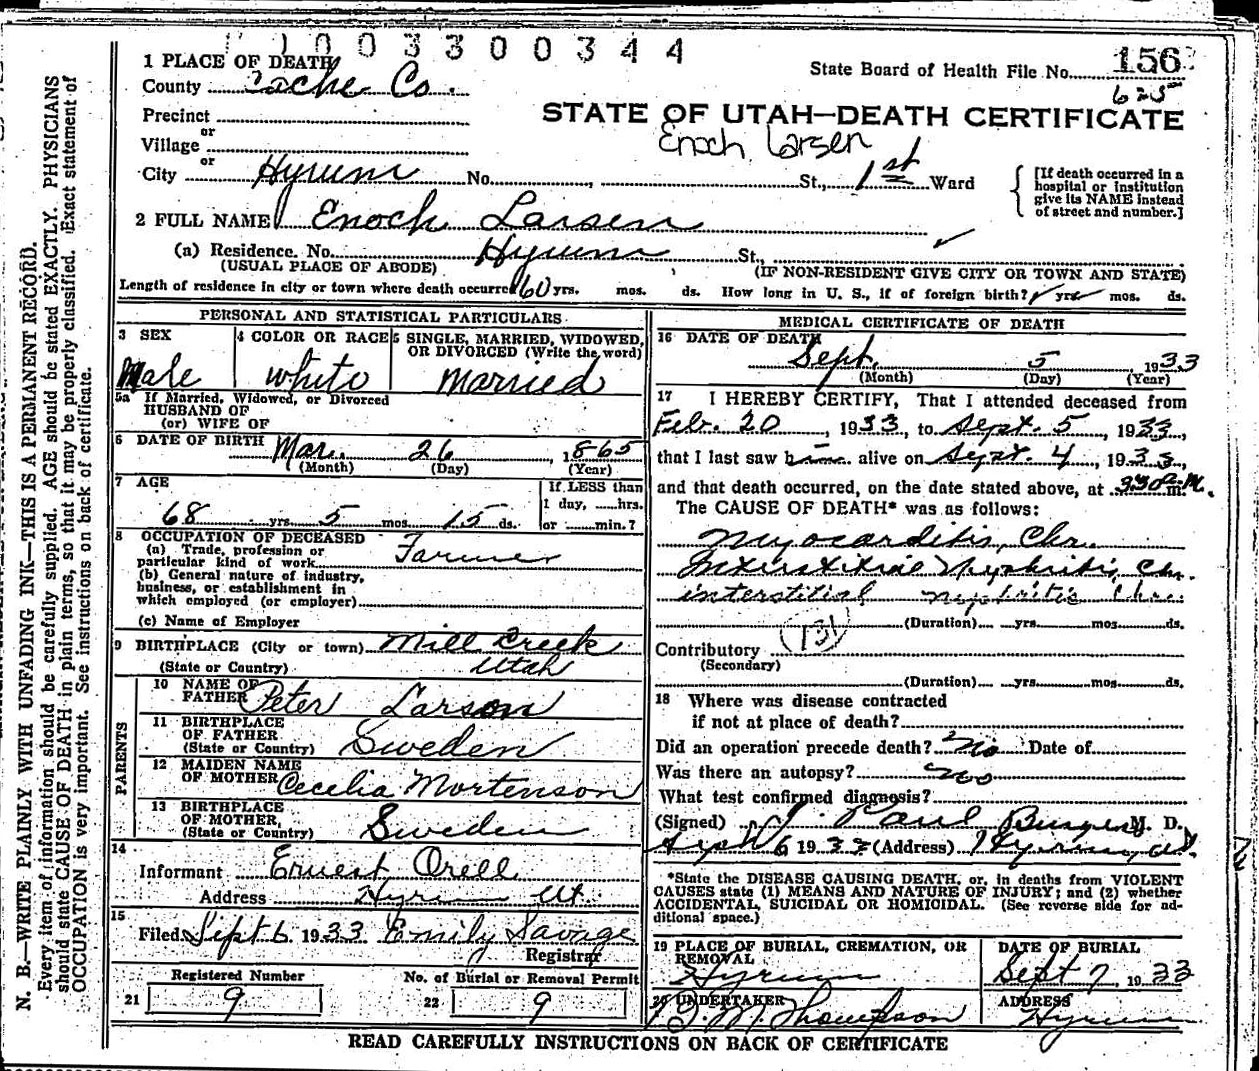 1003300344
1 PLACE OF DEATH
County Cache Co.
State Board of Health File No. 156
625
STATE OF UTAH—DEATH CERTIFICATE
Enoch Larsen
Precinct
or
Village
or
City Hyrum No. St., 1st Ward
[If death occurred in a
hospital or institution
give its NAME instead
of street and number.]
2 FULL NAME Enoch Larsen
(a) Residence. No. Hyrum St.,
(USUAL PLACE OF ABODE) (IF NON-RESIDENT GIVE CITY OR TOWN AND STATE)
Length of residence in city or town where death occurred 60 yrs. mos. ds. How long in U. S., if of foreign birth? yrs. mos. ds.
PERSONAL AND STATISTICAL PARTICULARS
3 SEX
Male
4 COLOR OR RACE
White
5 SINGLE, MARRIED, WIDOWED,
OR DIVORCED (Write the word)
Married
5a If Married, Widowed, or Divorced
HUSBAND OF
(or) WIFE OF
6 DATE OF BIRTH Mar. 26, 1865
(Month) (Day) (Year)
7 AGE
68 yrs. 5 mos. 15 ds.
If LESS than
1 day, hrs.
or min.?
8 OCCUPATION OF DECEASED
(a) Trade, profession or
particular kind of work Farmer
(b) General nature of industry,
business, or establishment in
which employed (or employer)
(c) Name of Employer
9 BIRTHPLACE (City or town) Mill Creek
(State or Country) Utah
PARENTS
10 NAME OF
FATHER Peter Larson
11 BIRTHPLACE
OF FATHER
(State or Country) Sweden
12 MAIDEN NAME
OF MOTHER Cecelia Mortenson
13 BIRTHPLACE
OF MOTHER,
(State or Country) Sweden
14
Informant Ernest Orell
Address Hyrum Ut
15
Filed Sept 6 1933 Emily Savage
Registrar
Registered Number
21 9
No. of Burial or Removal Permit
22 9
MEDICAL CERTIFICATE OF DEATH
16 DATE OF DEATH
Sept. 5 1933
(Month) (Day) (Year)
17 I HEREBY CERTIFY, That I attended deceased from
Feb. 20, 1933, to Sept. 5, 1933,
that I last saw him alive on Sept. 4, 1933,
and that death occurred, on the date stated above, at 330 a.m.
The CAUSE OF DEATH* was as follows:
Myocarditis, Chr.
Interstitial Nephritis, Chr.
interstitial nephritis Chr.
(Duration) yrs. mos. ds.
131
Contributory
(Secondary)
(Duration) yrs. mos. ds.
18 Where was disease contracted
if not at place of death?
Did an operation precede death? No Date of
Was there an autopsy? No
What test confirmed diagnosis?
(Signed) Paul M. D.
Sept 6 1933 (Address) Hyrum, Ut.
*State the DISEASE CAUSING DEATH, or, in deaths from VIOLENT
CAUSES state (1) MEANS AND NATURE OF INJURY; and (2) whether
ACCIDENTAL, SUICIDAL OR HOMICIDAL. (See reverse side for ad-
ditional space.)
19 PLACE OF BURIAL, CREMATION, OR
REMOVAL
Hyrum
DATE OF BURIAL
Sept 7, 1933
20 UNDERTAKER
M. Thompson
ADDRESS
Hyrum
READ CAREFULLY INSTRUCTIONS ON BACK OF CERTIFICATE
N. B.—WRITE PLAINLY WITH UNFADING INK—THIS IS A PERMANENT RECORD.
Every item of information should be carefully supplied. AGE should be stated EXACTLY. PHYSICIANS
should state CAUSE OF DEATH in plain terms, so that it may be properly classified. Exact statement of
OCCUPATION is very important. See instructions on back of certificate.